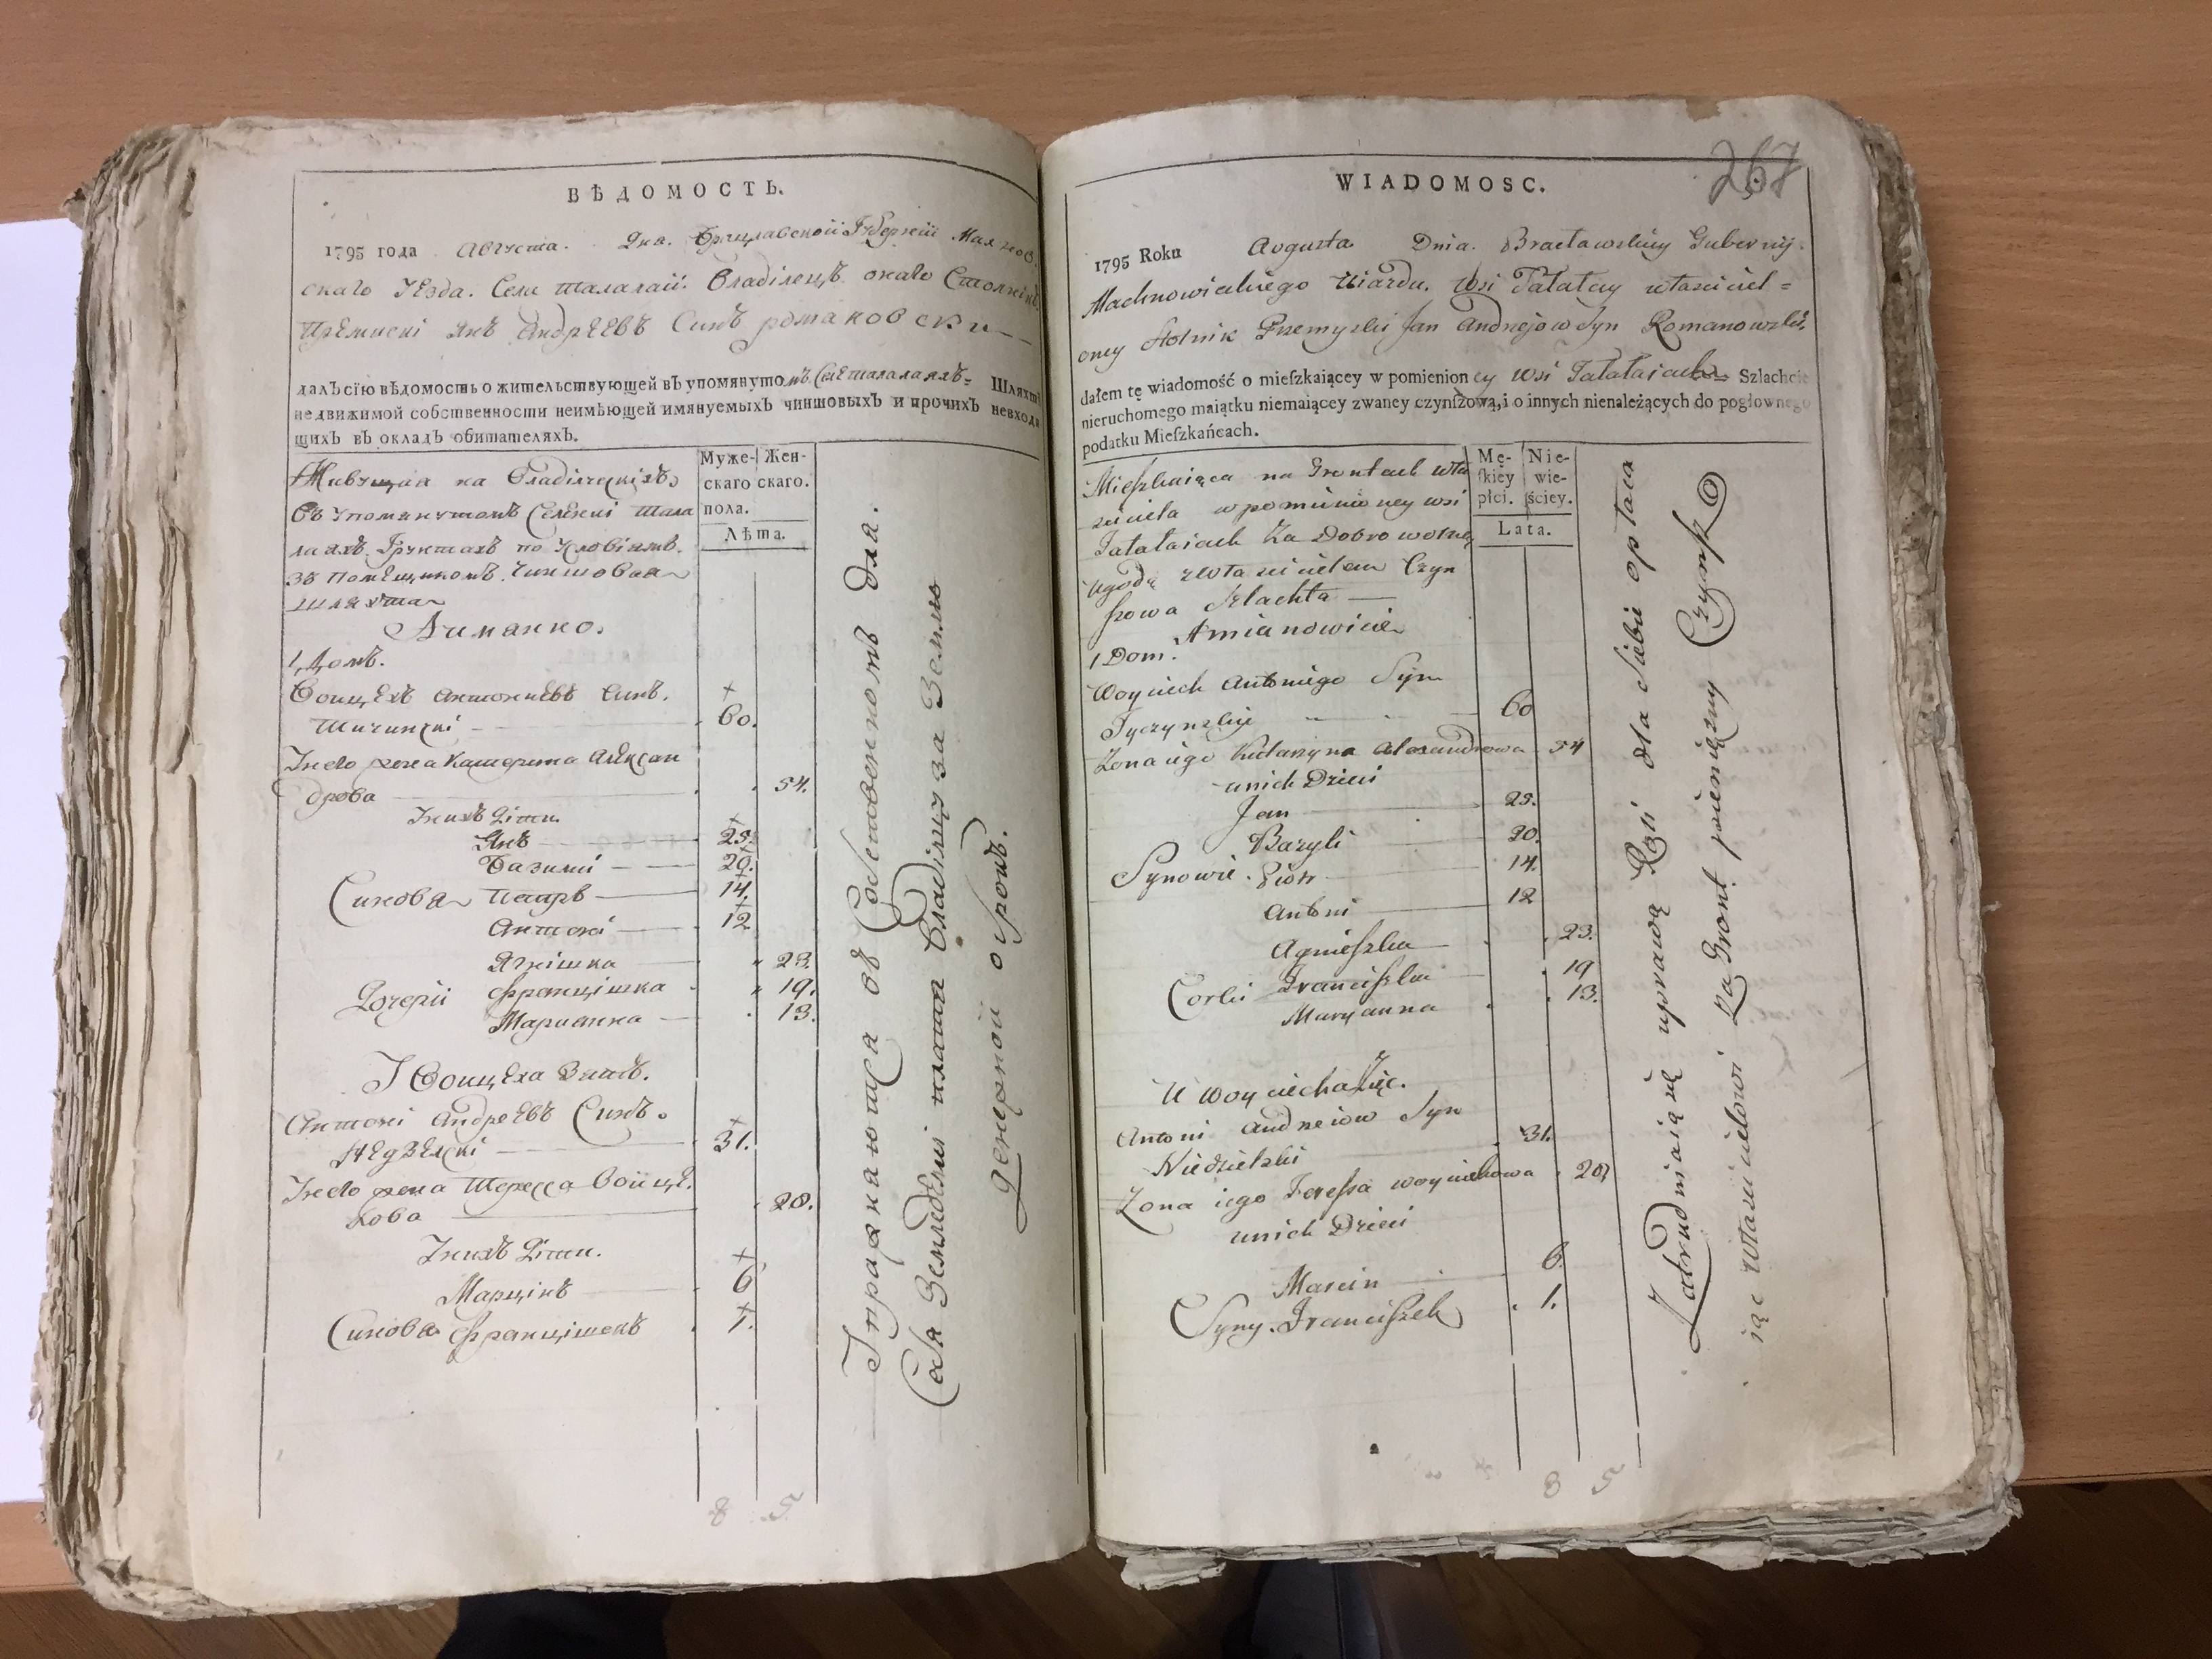 ВѢДОМОСТЬ.
1795 года Августа. Дня. Брацлавской Губернїи Махнов.
скаго Уезда. Села Талалаи. Владілецъ онаго Столникъ
Пржемискі Янъ Андреевъ Синъ Романовски
далъ сїю вѣдомость о жительствующей въ упомянутомъ Селе Талалаяхъ= Шляхтѣ
недвижимой собственности неимѣющей имянуемыхъ чиншовыхъ и прочихъ невходя
щихъ въ окладъ обитателяхъ.
Живущая на Владілческіхъ
въ упомянутомъ Селеніи Тала
лаяхъ Грунтахъ по Условіямъ
зъ помещикомъ Чиншовая
шляхта
Муже- Жен-
скаго скаго.
пола.
Лѣта.
1, Домъ.
Воицехъ Антониевъ Синъ.
Тичинскі 60.
Унего жена Катерина Алексан
дрова 54.
Унихъ Діти.
Янъ 23.
Базилі 20.
Синовя Петръ 14.
Антоні 12.
Ягнішка 23.
Дочери Францішка 19.
Марианна 13.
У Воицеха Зять.
Антоні Андреевъ Синъ.
Недзелскі 31.
Унего жена Тересса Воице.
хова 20.
Унихъ Діти.
Марцінъ 6
Синова Францішекъ 1.
8 5
Упражняются въ собственномъ для
Себя Земледелиі платя Владілцу за Землю
Денежной оброкъ.
267
WIADOMOSC.
1795 Roku Avgusta Dnia. Bracławskiey Gubernij.
Machnowieckiego Uiazdu. Wsi Tałałay własciciel=
oney Stolnik Przemyski Jan Andrejow Syn Romanowski,
dałem tę wiadomość o mieſzkaiącey w pomienioney wsi Tałałaiach Szlachcie
nieruchomego maiątku niemaiącey zwaney czynſzową, i o innych nienależących do pogłownego
podatku Mieſzkańcach.
Mieſzkaiąca na Grontach wła
sciciela wpomienioney wsi
Tałałaiach Za Dobrowolną
ugodą zwłascicielem Czyn
ſzowa Szlachta
Mę- Nie-
ſkiey wie-
płci. ściey.
Lata.
1 Dom.
Woyciech Antoniego Syn
Tyczynski 60
Zona iego Katarzyna Alexandrowa 54
unich Dzieci
Jan 23.
Bazyli 20.
Synowie. Piotr 14.
Antoni 12
Agnieſzka 23.
Corki Franciſzka 19
Maryanna 13.
U Woyciecha Zięc.
Antoni Andrzeiow Syn
Niedzielski 31.
Zona iego Tereſsa woyciechowa 20,
unich Dzieci
Marcin 6.
Syny. Franciſzek 1.
8 5
Zatrudniaią się uprawą Roli dla siebie opłaca
iąc własciecielowi za Gront pieniężny Czynſz